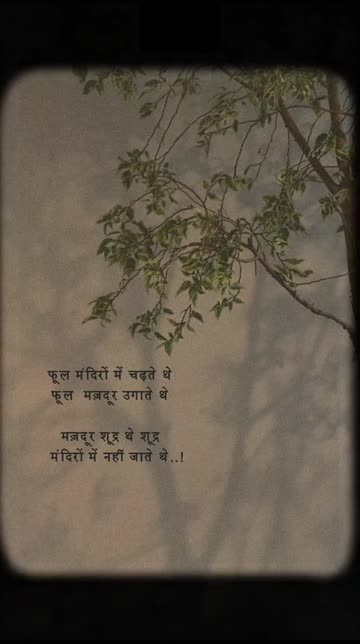 फूल मंदिरों में चढ़ते थे
फूल मज़दूर उगाते थे
मज़दूर शूद्र थे शूद्र
मंदिरों में नहीं जाते थे..!